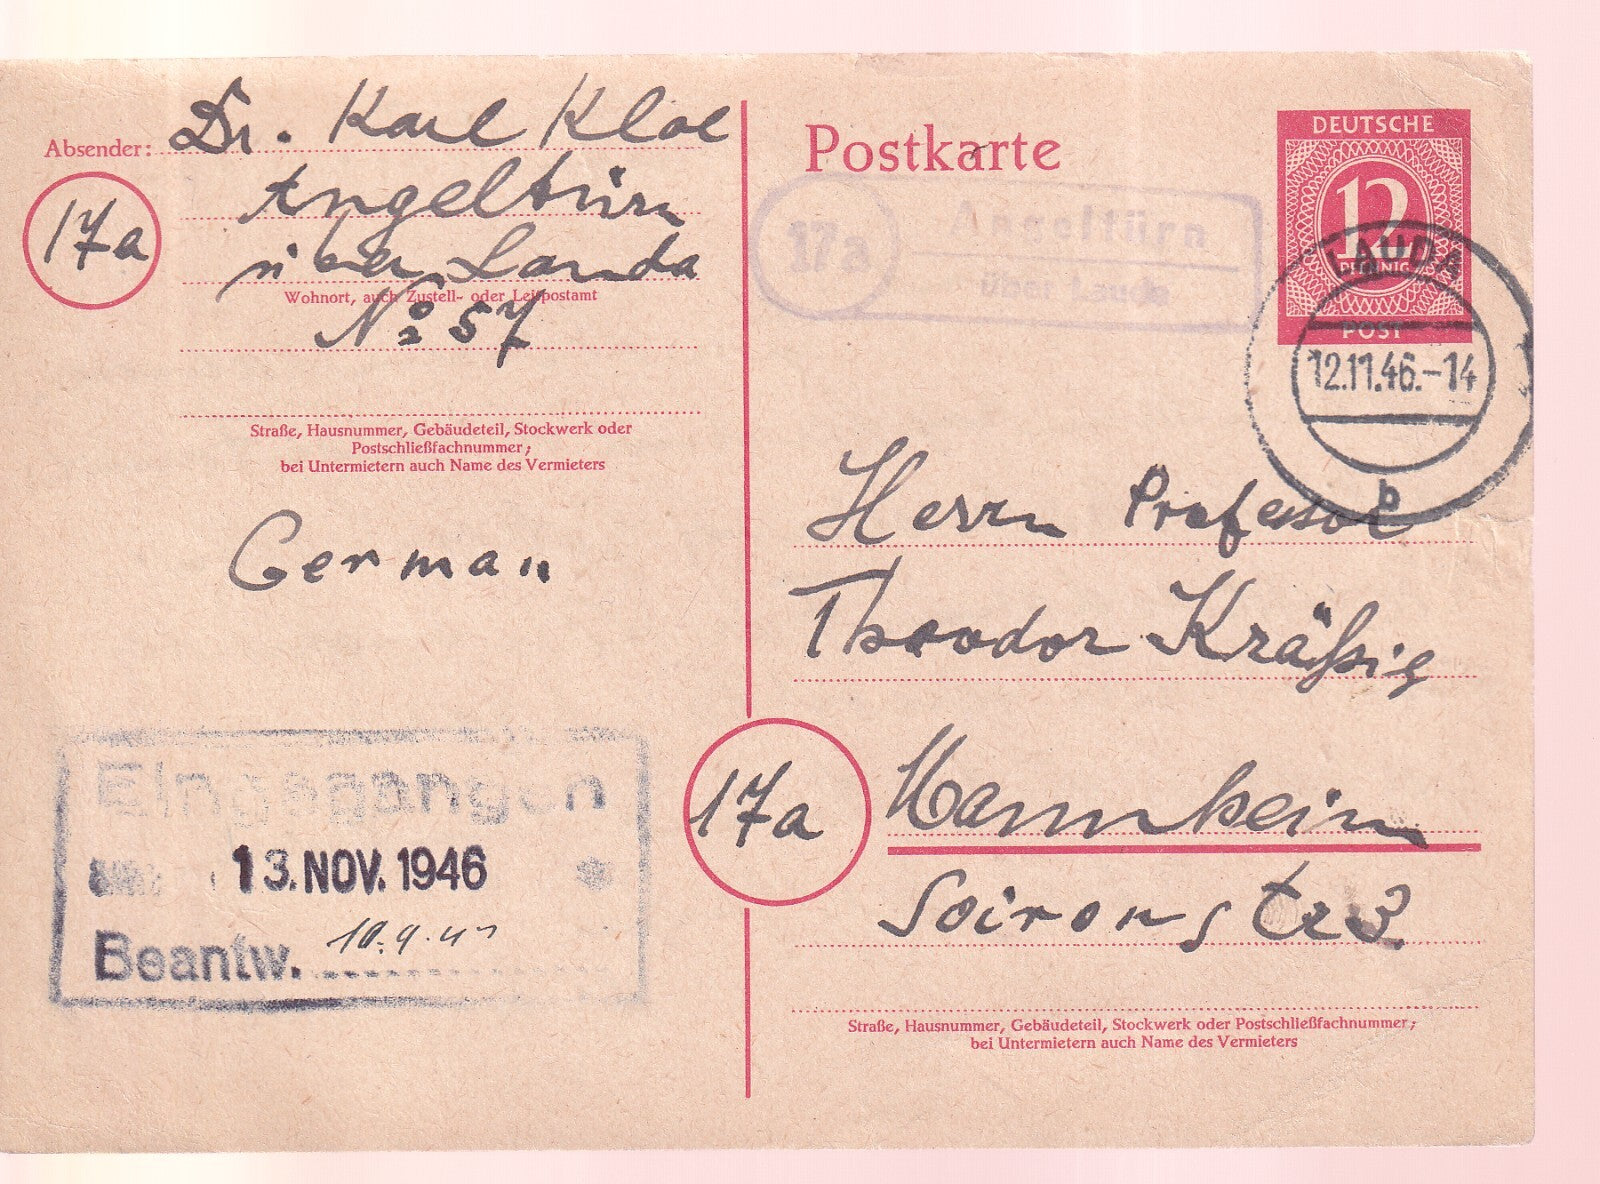 Absender: Dr. Karl Kloe
17a
Angeltürn
über Lauda
Wohnort, auch Zustell- oder Leitpostamt
No 57
Straße, Hausnummer, Gebäudeteil, Stockwerk oder
Postschließfachnummer;
bei Untermietern auch Name des Vermieters
German
Eingegangen
13. NOV. 1946
Beantw.
Postkarte
17a Angeltürn
über Lauda
DEUTSCHE
12
PFENNIG
POST
LAUDA
12.11.46.-14
b
Herrn Professor
Theodor Kräßig
17a Mannheim
Soironstr 3
Straße, Hausnummer, Gebäudeteil, Stockwerk oder Postschließfachnummer;
bei Untermietern auch Name des Vermieters